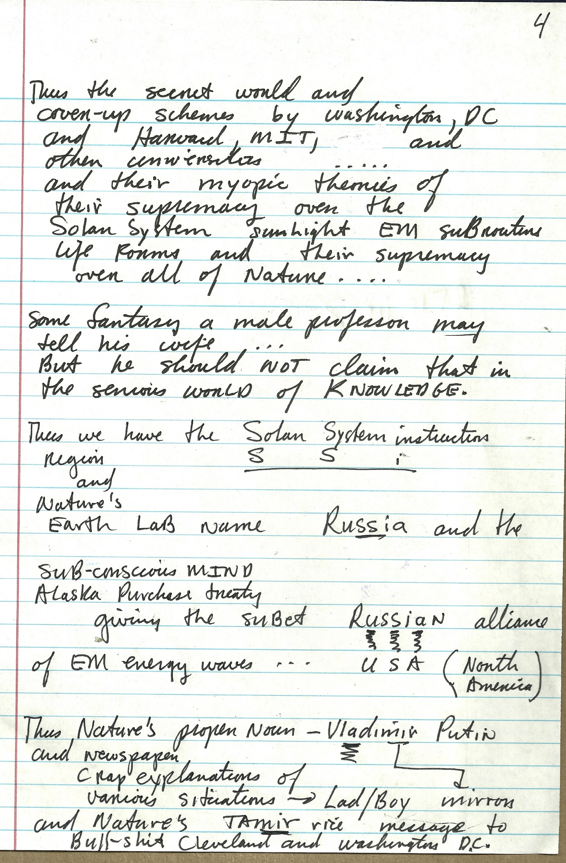 4
Thus the secret world and
cover-up schemes by Washington, DC
and Harvard, MIT, and
other universities .....
and their myopic theories of
their supremacy over the
Solar System sunlight EM subroutine
life forms and their supremacy
over all of Nature ....
Some fantasy a male professor may
tell his wife ...
But he should NOT claim that in
the serious world of KNOWLEDGE.
Thus we have the Solar System instruction
region S S i
and
Nature's
Earth LaB name Russia and the
suB-conscious MIND
Alaska Purchase treaty
giving the suBet RussiaN alliance
of EM energy waves ... U S A (North
America)
Thus Nature's proper noun - Vladimir Putin
and newspaper
Crap explanations of
various situations → Lad/Boy mirror
and Nature's TAmir rice message to
Bull-shit Cleveland and washington D.C.